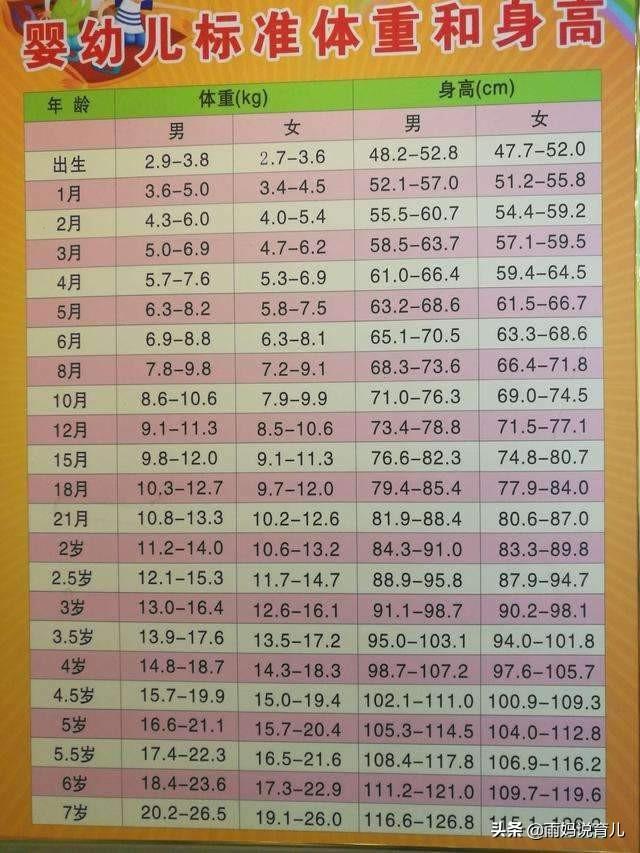 婴幼儿标准体重和身高
年龄 体重(kg) 身高(cm)
男 女 男 女
出生 2.9–3.8 2.7–3.6 48.2–52.8 47.7–52.0
1月 3.6–5.0 3.4–4.5 52.1–57.0 51.2–55.8
2月 4.3–6.0 4.0–5.4 55.5–60.7 54.4–59.2
3月 5.0–6.9 4.7–6.2 58.5–63.7 57.1–59.5
4月 5.7–7.6 5.3–6.9 61.0–66.4 59.4–64.5
5月 6.3–8.2 5.8–7.5 63.2–68.6 61.5–66.7
6月 6.9–8.8 6.3–8.1 65.1–70.5 63.3–68.6
8月 7.8–9.8 7.2–9.1 68.3–73.6 66.4–71.8
10月 8.6–10.6 7.9–9.9 71.0–76.3 69.0–74.5
12月 9.1–11.3 8.5–10.6 73.4–78.8 71.5–77.1
15月 9.8–12.0 9.1–11.3 76.6–82.3 74.8–80.7
18月 10.3–12.7 9.7–12.0 79.4–85.4 77.9–84.0
21月 10.8–13.3 10.2–12.6 81.9–88.4 80.6–87.0
2岁 11.2–14.0 10.6–13.2 84.3–91.0 83.3–89.8
2.5岁 12.1–15.3 11.7–14.7 88.9–95.8 87.9–94.7
3岁 13.0–16.4 12.6–16.1 91.1–98.7 90.2–98.1
3.5岁 13.9–17.6 13.5–17.2 95.0–103.1 94.0–101.8
4岁 14.8–18.7 14.3–18.3 98.7–107.2 97.6–105.7
4.5岁 15.7–19.9 15.0–19.4 102.1–111.0 100.9–109.3
5岁 16.6–21.1 15.7–20.4 105.3–114.5 104.0–112.8
5.5岁 17.4–22.3 16.5–21.6 108.4–117.8 106.9–116.2
6岁 18.4–23.6 17.3–22.9 111.2–121.0 109.7–119.6
7岁 20.2–26.5 19.1–26.0 116.6–126.8
头条 @雨妈说育儿